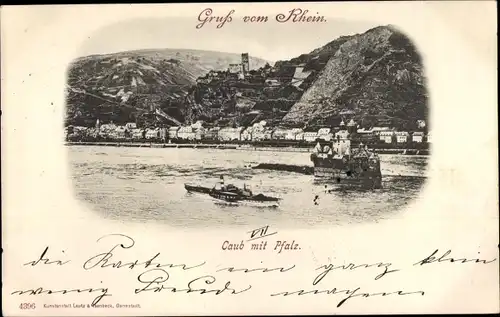 Gruß vom Rhein.
VII
Caub mit Pfalz.
die Karten ein ganz klein
wenig Freude machen.
4396 Kunstanstalt Lautz & Isenbeck, Darmstadt.